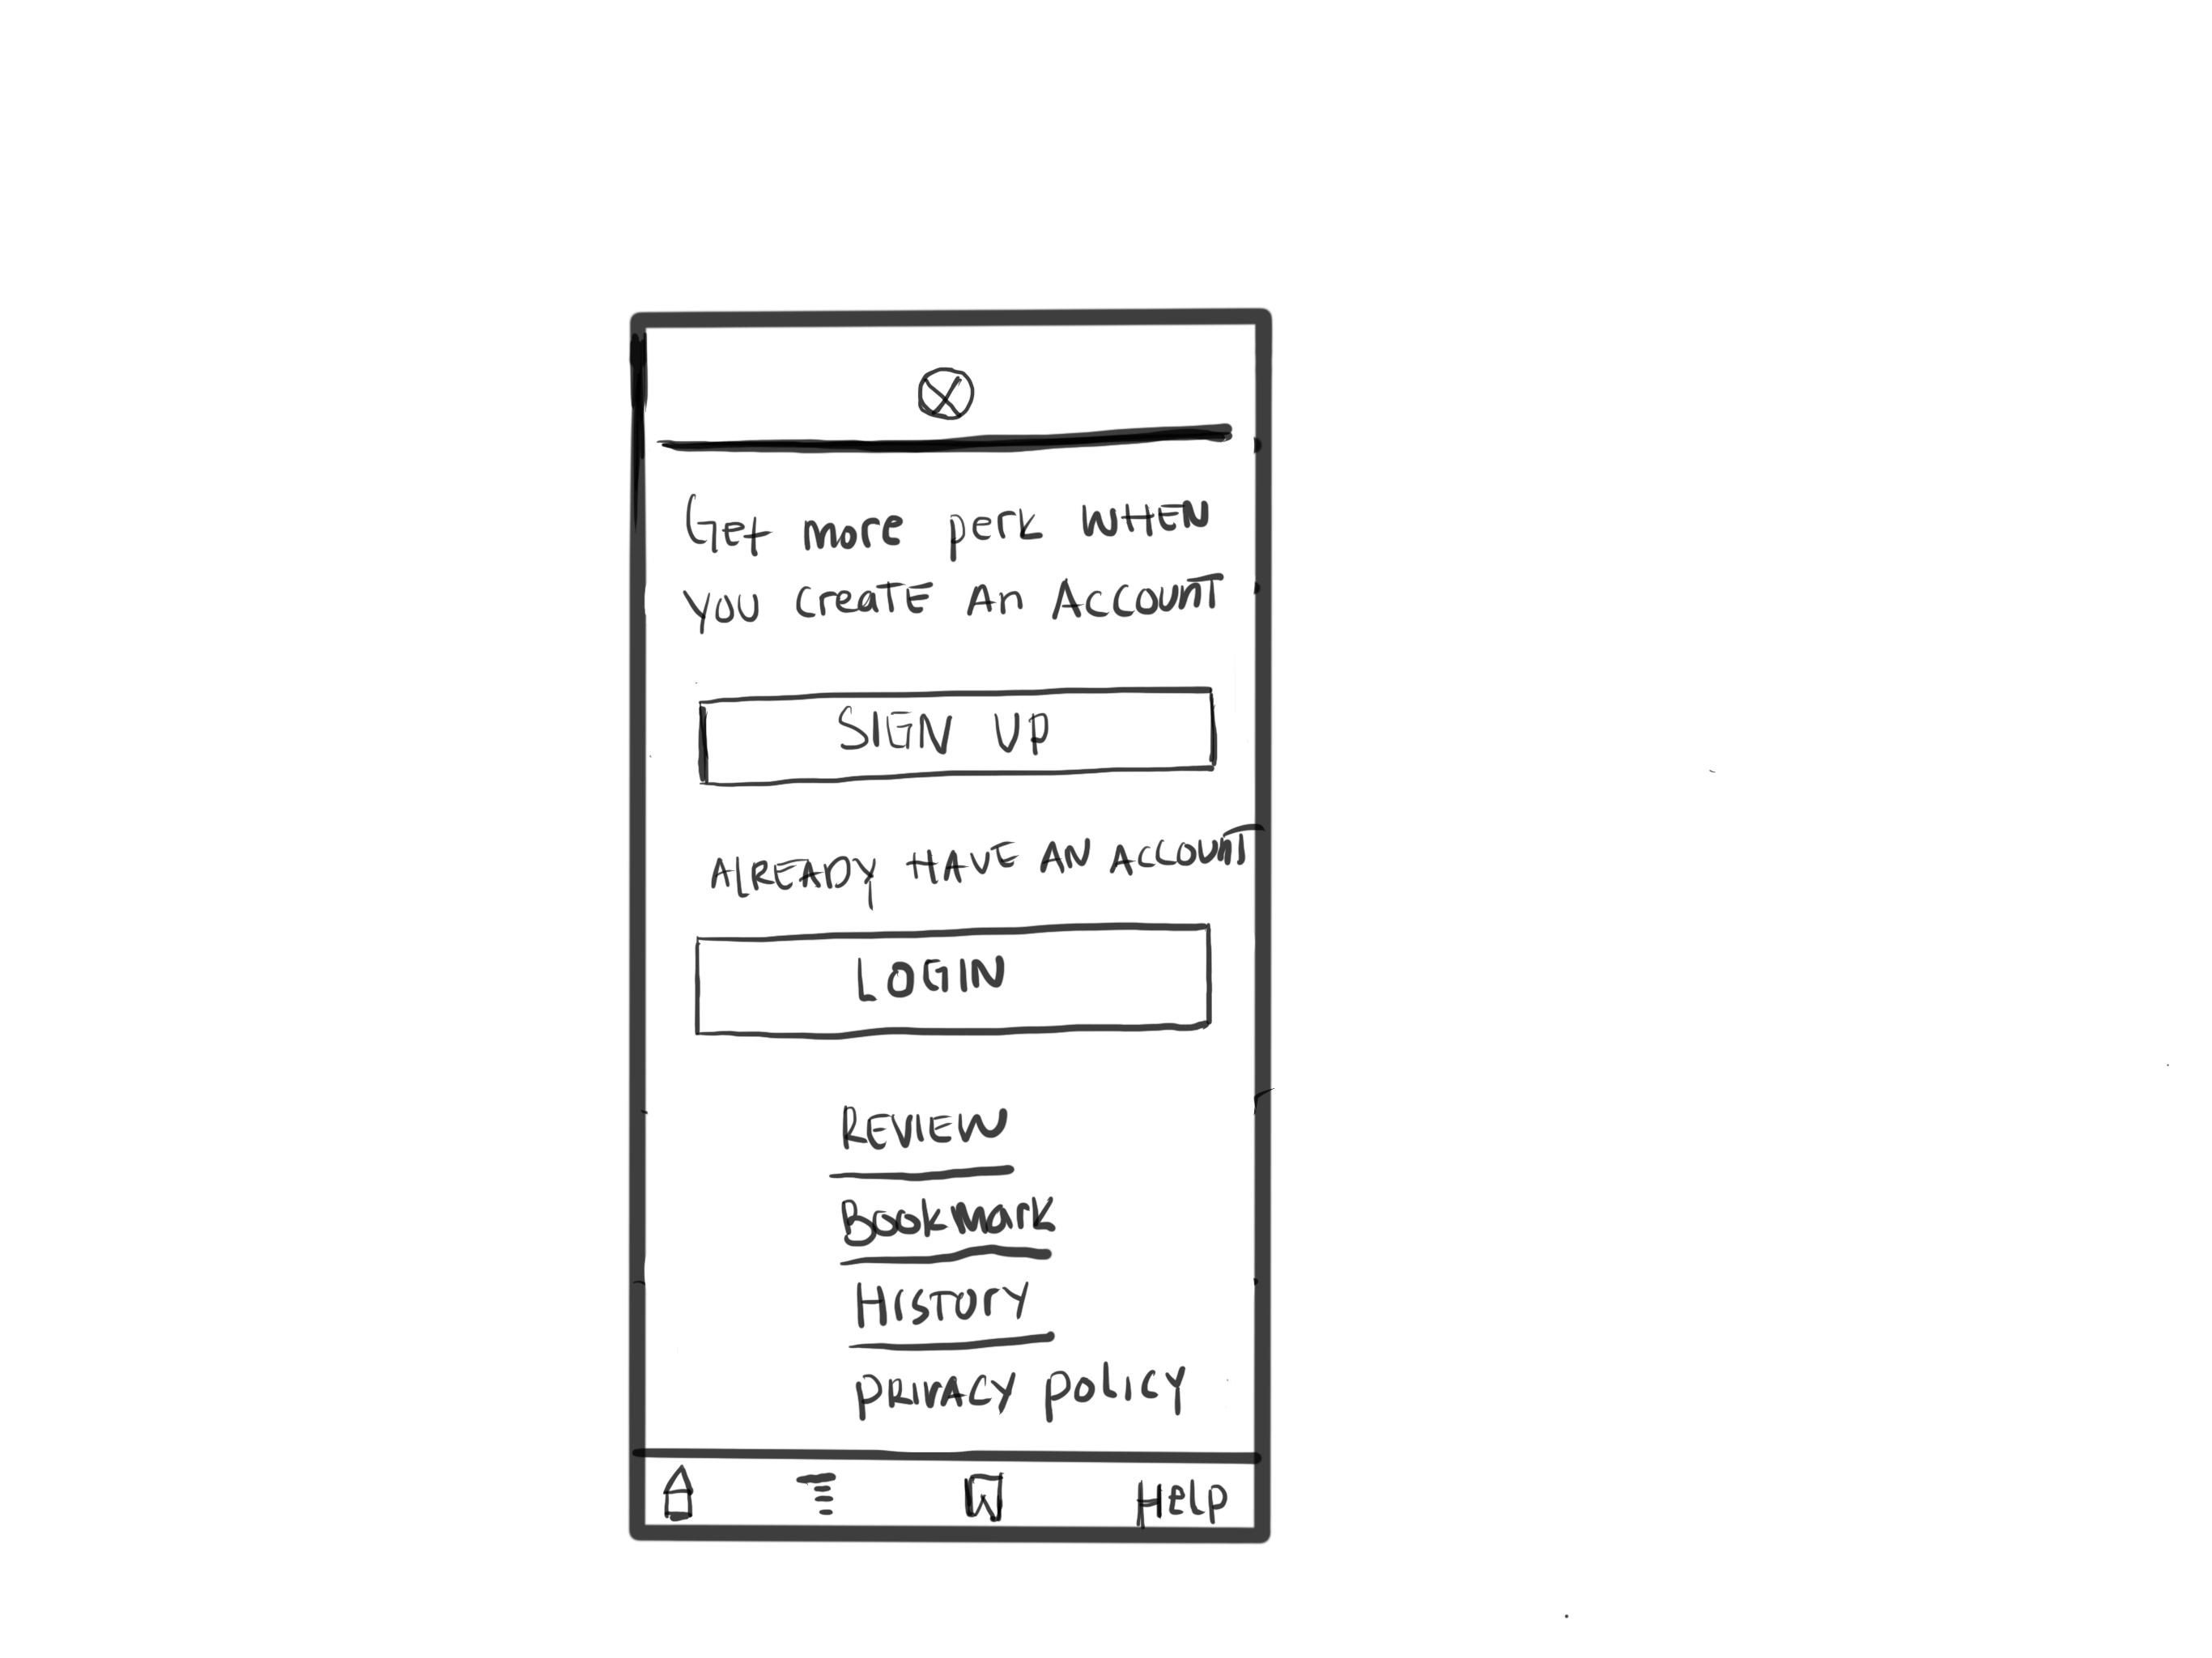 Get more perk WHEN
YOU CreaTE An ACCOUnT
SIGN UP
ALREADY HAVE AN ACCOUnT
LOGIN
REVIEW
BookMark
HISTOrY
PRIVACY POLICY
HElP